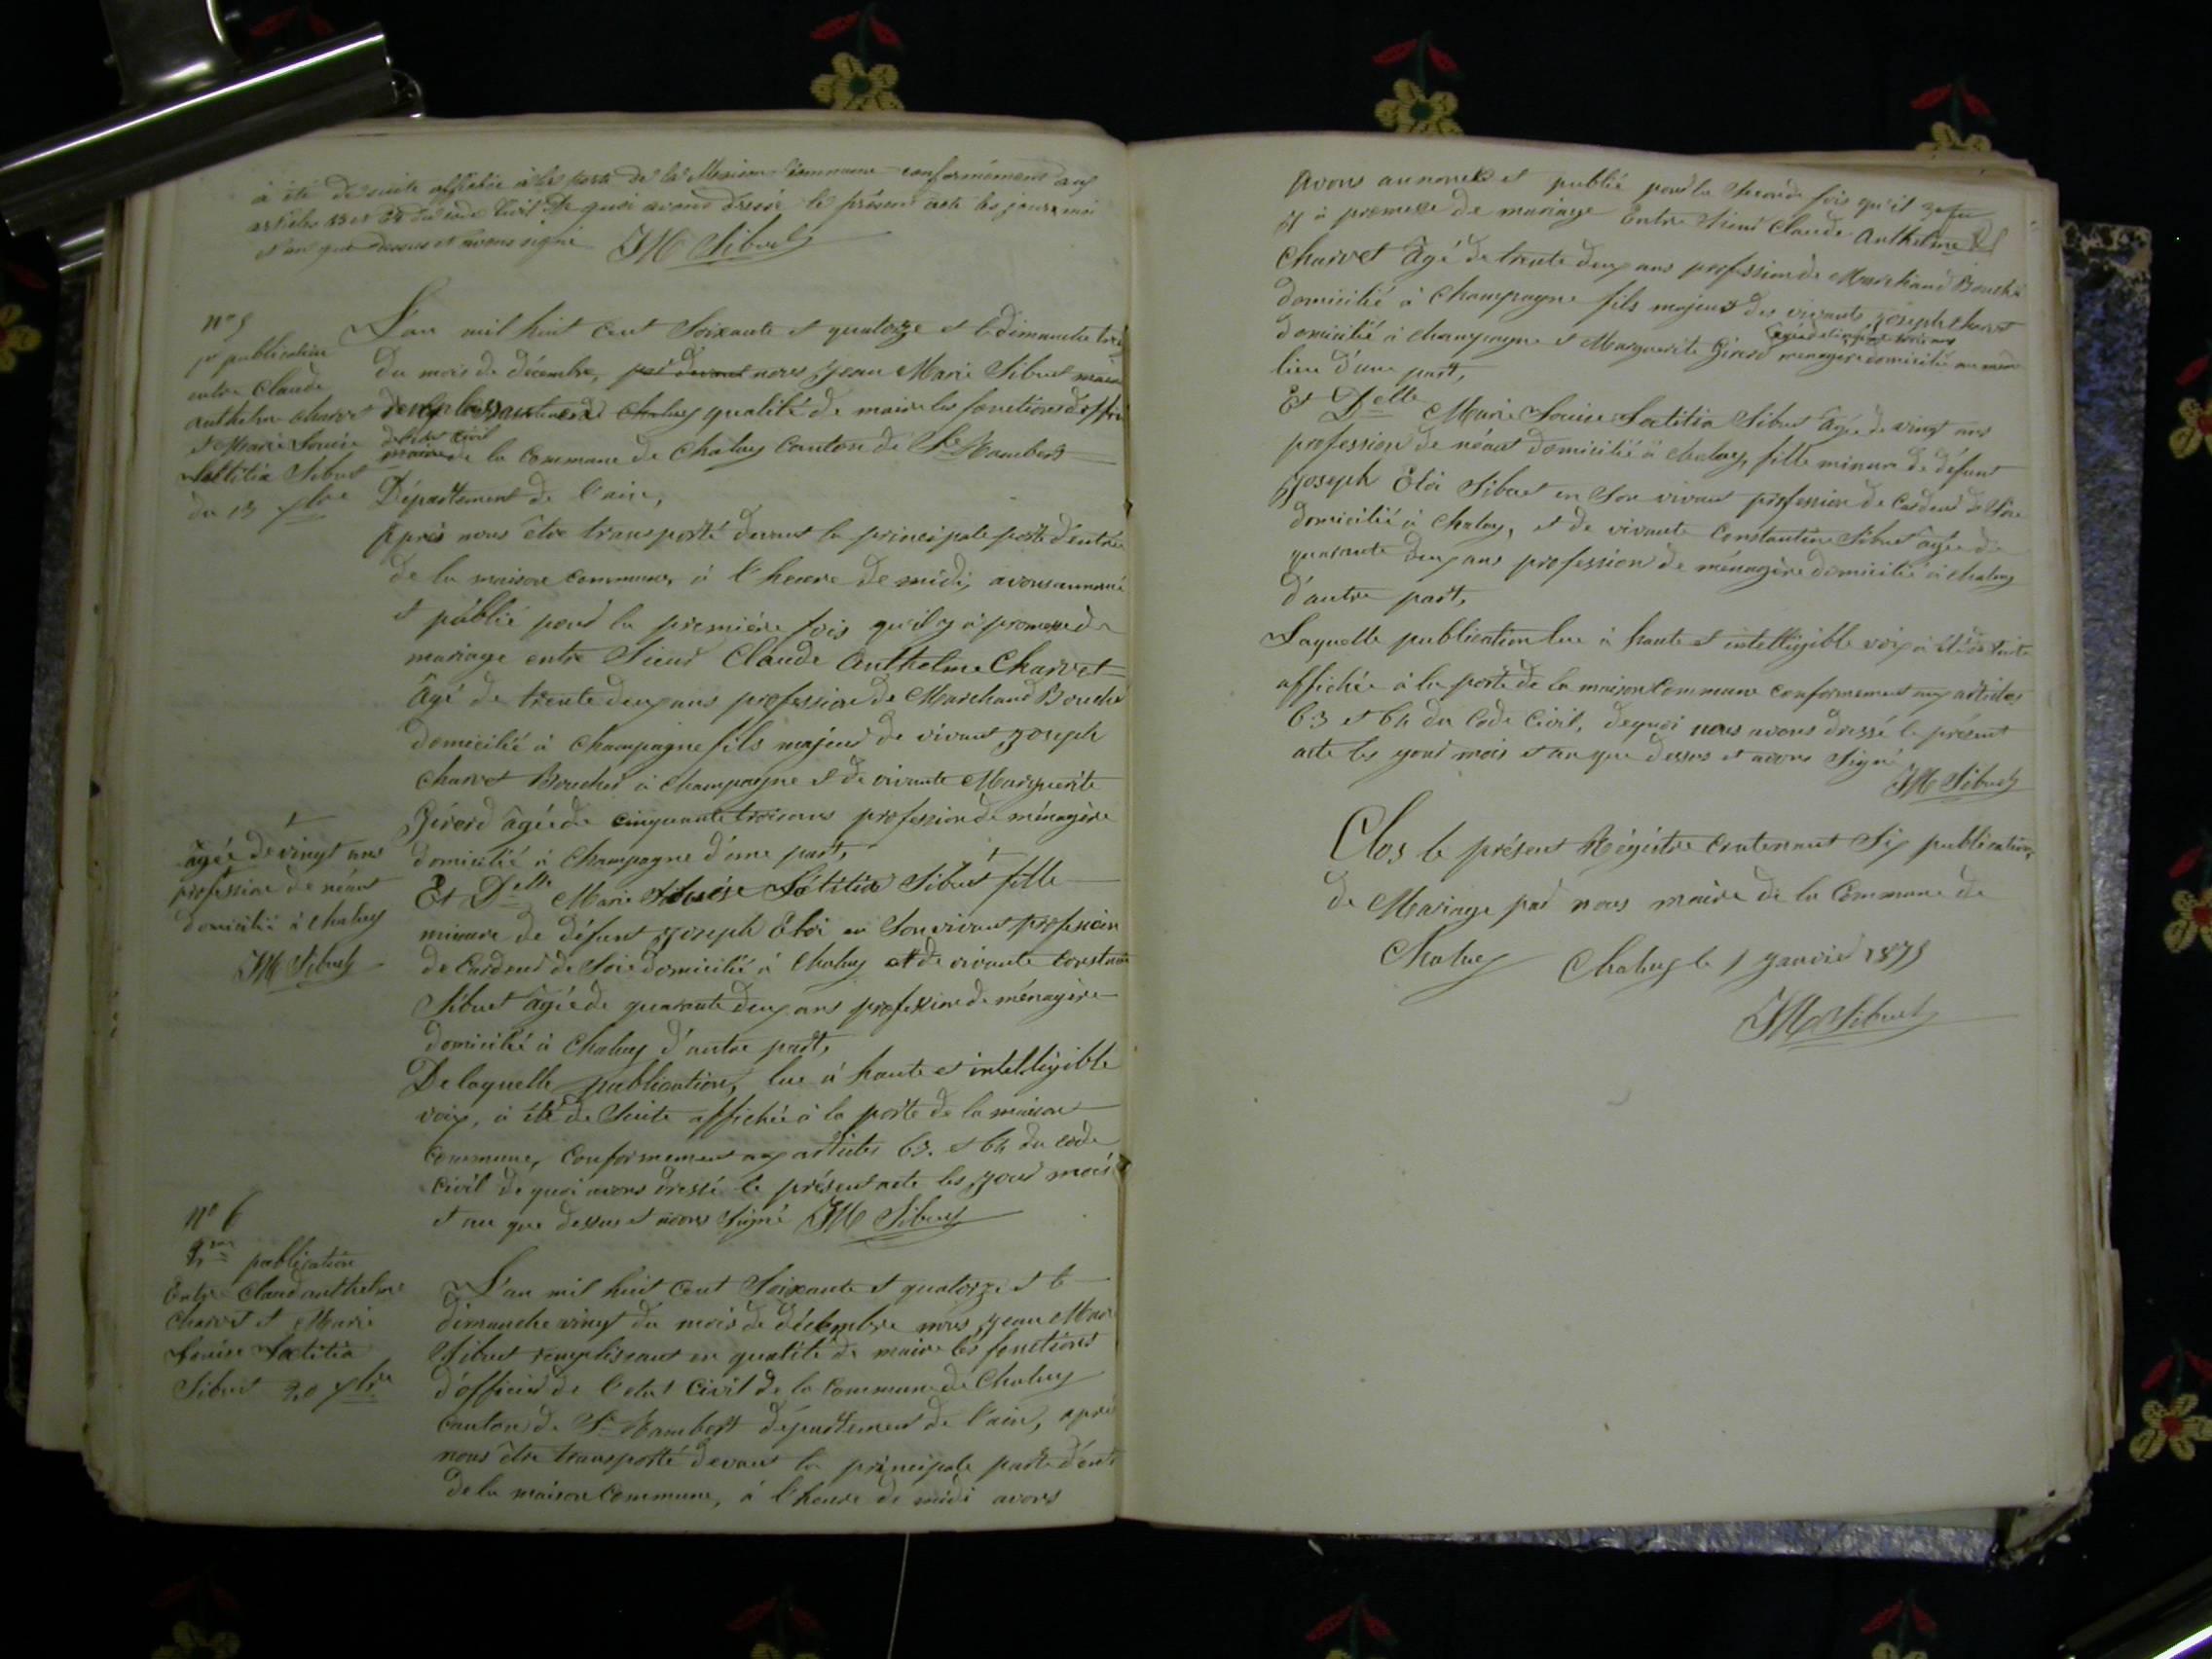 à été de suite affichée à la porte de la Maison Commune conformément aux
articles 63 et 64 du code Civil De quoi avons dressé le présent acte les jour, moi
et an que dessus et avons signé JM Sibuet
n° 5
1re publication
entre Claude
anthelme Charvet
et Marie Louise
Laetitia Sibuet
du 13 Xbre
L'an mil huit Cent Soixante et quatorze et le dimanche treize
du mois de décembre, par devant nous Jean Marie Sibuet maire
Chaley qualité de maire les fonctions d'offici
de l'état civil
maire de la Commune de Chaley Canton de St Rambert
Département de l'ain,
Après nous être transporté devant la principale porte d'entrée
de la maison Commune, à l'heure de midi, avons annoncé
et publié pour la première fois qu'il y à promesse de
mariage entre Sieur Claude Anthelme Charvet
âgé de trente deux ans profession de Marchand Boucher
domicilié à Champagne fils majeur de vivant Joseph
Charvet Boucher à Champagne et de vivante Marguerite
Gérerd âgée de cinquante trois ans profession de ménagère
domicilié à Champagne d'une part,
Et Delle Marie Louise Létitia Sibuet fille
mineure de défunt Joseph Eloi en Son vivant profession
de Cardeur de Soie domicilié à Chaley et de vivante Constan
Sibuet âgée de quarante deux ans profession de ménagère
domicilié à Chaley d'autre part,
De laquelle publication, lue à haute et intelligible
voix, à été de Suite affichée à la porte de la maison
Commune, Conformement aux articles 63. et 64 du code
Civil de quoi avons dressé le présent acte les jour mois
et an que dessus et avons Signé JM Sibuet
âgée de vingt ans
profession de néant
domicilié à Chaley
JM Sibuet
n° 6
2me publication
Entre Claud anthelme
Charvet et Marie
Louise Laetitia
Sibuet 20 Xbre
L'an mil huit Cent Soixante et quatorze et le
dimanche vingt du mois de décembre nous Jean Mari
Sibuet remplissant en qualité de maire les fonctions
d'officier de l'etat Civil de la Commune de Chaley
Canton de St Rambert département de l'ain, aprè
nous être transporté devant la principale porte d'ent
de la maison Commune, à l'heure de midi avons
Avons annoncé et publié pour la seconde fois qu'il
y à promesse de mariage Entre Sieur Claude Anthelme
Charvet âgé de trente deux ans profession de Marchand Bouché
domicilié à Champagne fils majeur des vivants Joseph Charvet
âgée de cinquante trois ans
domicilié à Champagne et Marguerite Gérerd ménagère domicilié au même
lieu d'une part,
Et Delle Marie Louise Laetitia Sibuet âgée de vingt ans
profession de néant domicilié à Chaley, fille mineur de défunt
Joseph Eloi Sibuet en Son vivant profession de Cardeur de Soie
domicilié à Chaley, et de vivante Constantine Sibuet âgée de
quarante deux ans profession de ménagère domicilié à Chaley
d'autre part,
Laquelle publication lue à haute et intelligible voix à été de Suite
affichée à la porte de la maison Commune Conformement aux articles
63 et 64 du Code Civil, de quoi nous avons dressé le présent
acte les jour mois et an que dessus et avons Signé
JM Sibuet
Clos le présent Régistre Contennant Six publications
de Mariage par nous maire de la Commune de
Chaley Chaley le 1 Janvier 1875
JM Sibuet